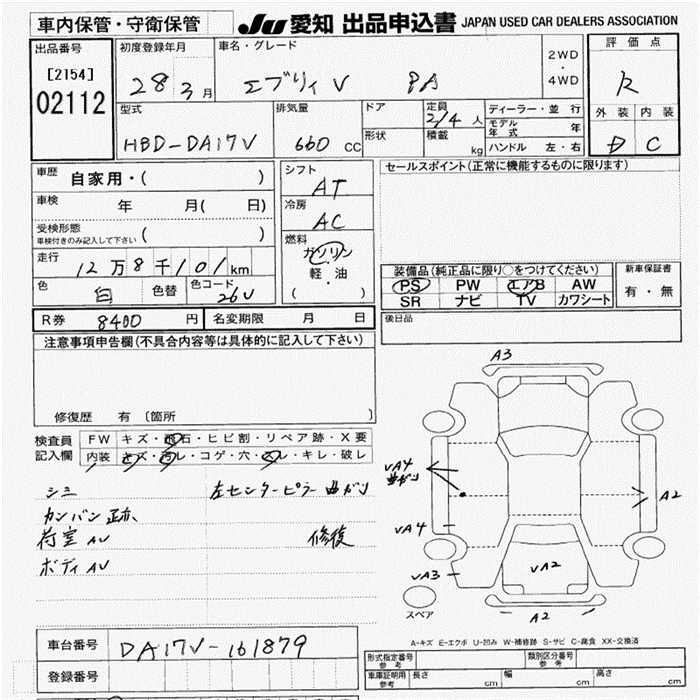 車内保管・守衛保管
JU 愛知 出品申込書 JAPAN USED CAR DEALERS ASSOCIATION
出品番号
[2154]
02112
初度登録年月
28 3月
車名・グレード
エブリィV PA
2WD
・
4WD
評価点
R
外装 内装
D C
型式
HBD-DA17V
排気量
660 CC
ドア
形状
定員
2/4人
積載
kg
ディーラー・並行
モデル年式 年
ハンドル 左・右
車歴 自家用・( )
車検 年 月( 日)
受検形態
車検付きのみ記入して下さい ( )
走行 12万8千101km
色 白 色替 色コード 26U
シフト
AT
冷房
AC
燃料
ガソリン
軽・油
・
( )
セールスポイント(正常に機能するものに限ります)
装備品(純正品に限り○をつけてください)
PS PW エアB AW
SR ナビ TV カワシート
新車保証書
有・無
後日品
R券 8400円 名変期限 月 日
注意事項申告欄(不具合内容等は具体的に記入して下さい)
修復歴 有 〔箇所 〕
検査員
記入欄
FW キズ・飛石・ヒビ割・リペア跡・X要
内装 キズ・汚レ・コゲ・穴・スレ・キレ・破レ
シミ
カンバン跡
荷室AU
ボディAU
左センターピラー曲ガリ
修復
A3
VA4
曲ガリ
VA4
VA3
スペア
VA2
A2
A2
A-キズ E-エクボ U-凹み W-補修跡 S-サビ C-腐食 XX-交換済
車台番号 DA17V-161879
登録番号
型式指定番号
参考
類別区分番号
参考
車庫証明用
参考
長さ cm 幅 cm 高さ cm